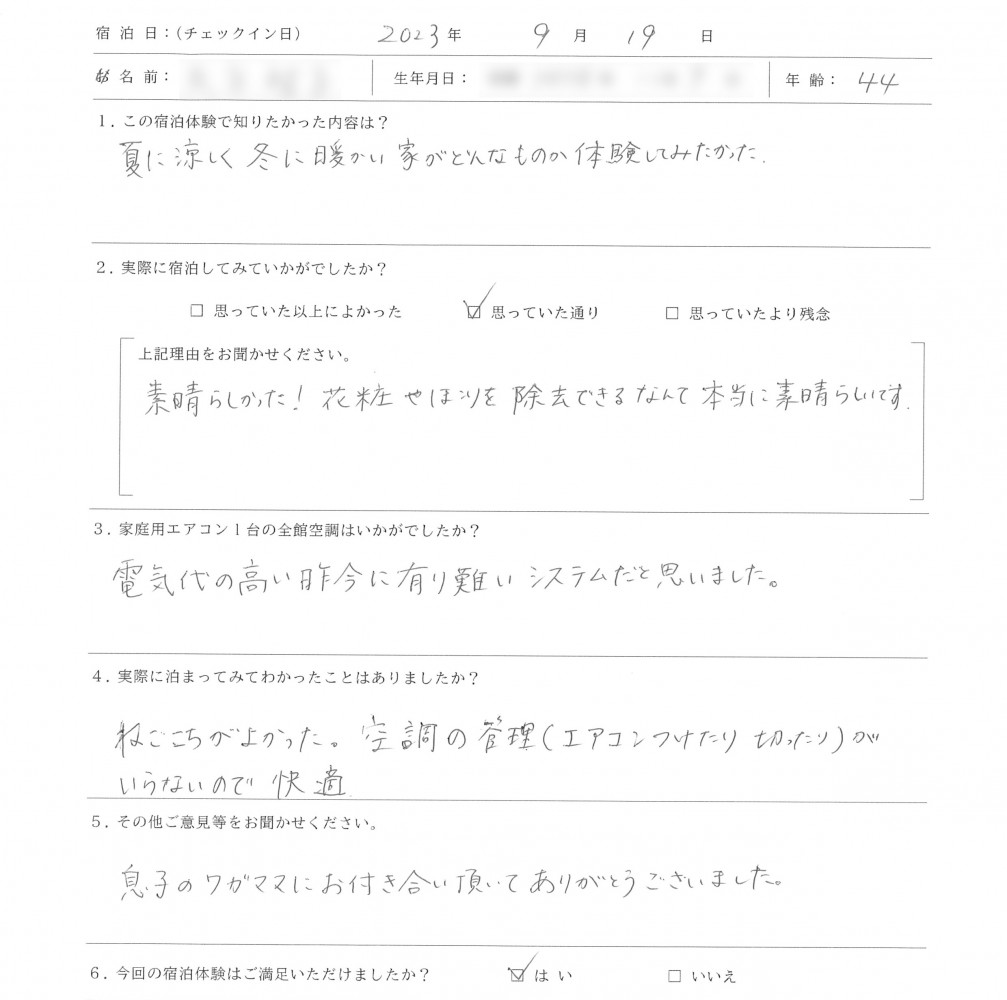 宿泊日:(チェックイン日) 2023年 9月 19日
お名前: 生年月日: 年齢: 44
1. この宿泊体験で知りたかった内容は?
夏に涼しく 冬に暖かい 家がどんなものか 体験してみたかった.
2. 実際に宿泊してみていかがでしたか?
□ 思っていた以上によかった ☑ 思っていた通り □ 思っていたより残念
上記理由をお聞かせください。
素晴らしかった! 花粧やほこりを 除去できるなんて 本当に素晴らしいです.
3. 家庭用エアコン1台の全館空調はいかがでしたか?
電気代の高い昨今に有り難い システムだと思いました。
4. 実際に泊まってみてわかったことはありましたか?
ねごこちがよかった。空調の管理(エアコンつけたり 切ったり)が
いらないので 快適
5. その他ご意見等をお聞かせください。
息子のワガママにお付き合い頂いてありがとうございました。
6. 今回の宿泊体験はご満足いただけましたか? ☑ はい □ いいえ